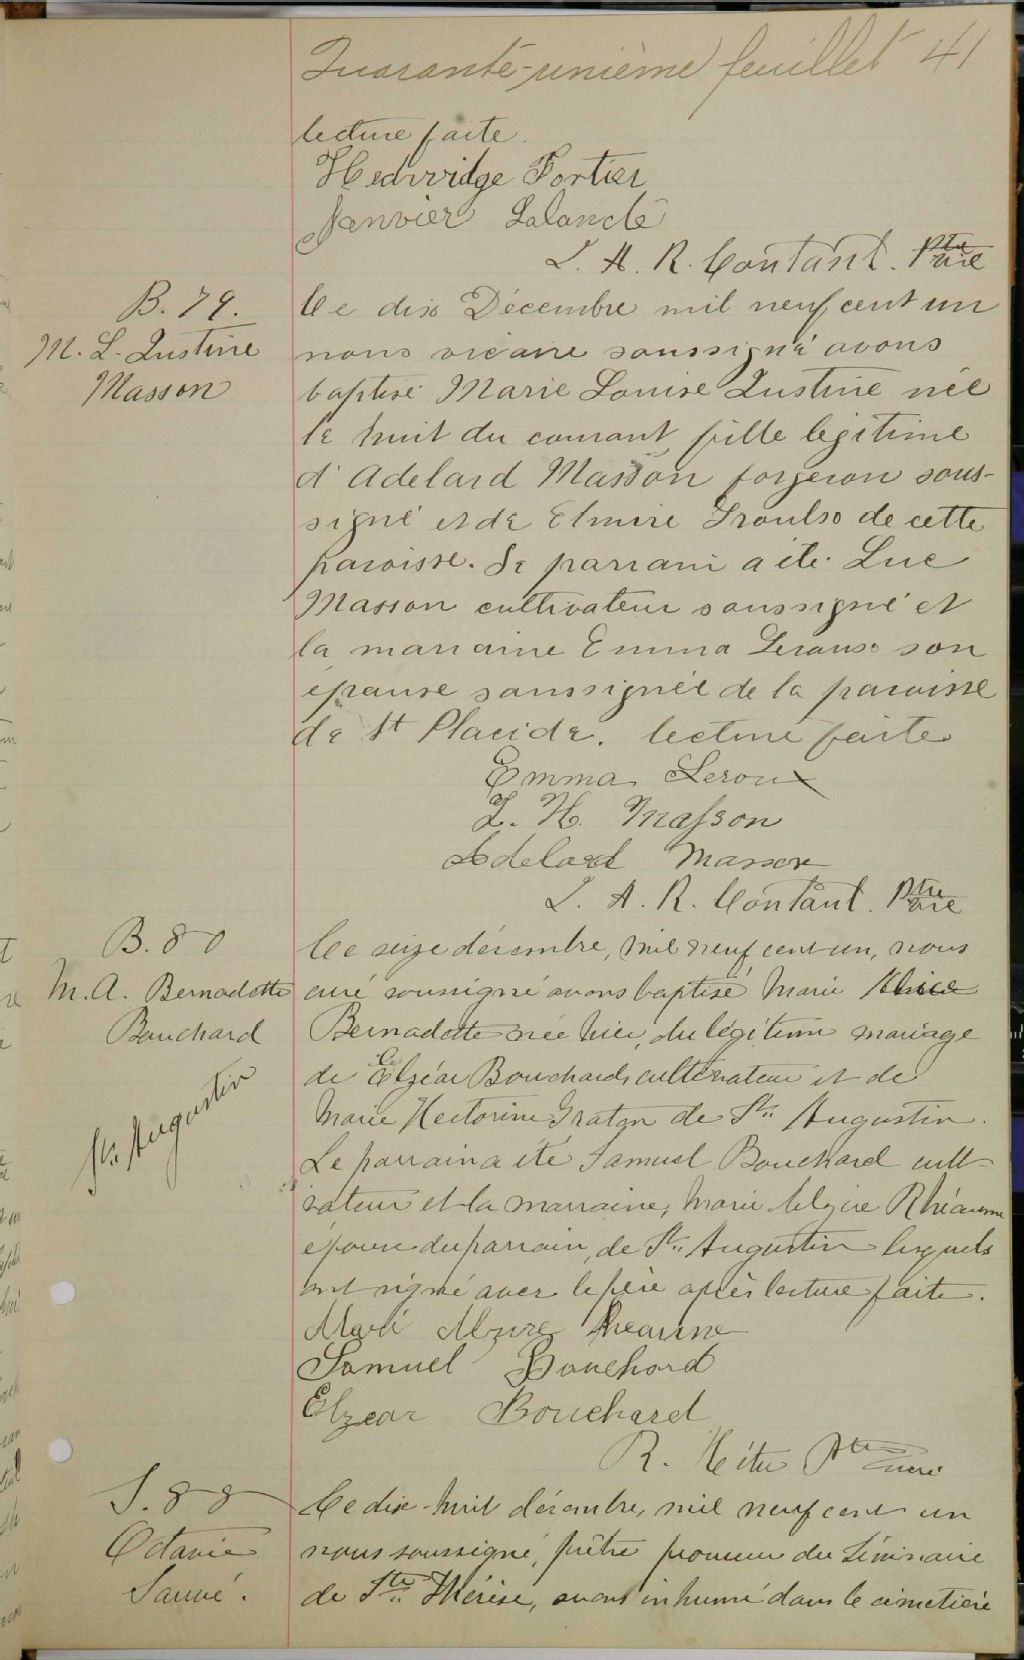 Quarante-unième feuillet 41
lecture faite.
Hedwidge Fortier
Janvier Lalande
L. A. R. Contant. Ptre
vic
B. 79.
M. L. Justine
Masson
Le dix Décembre mil neuf cent un
nous vicaire soussigné avons
baptisé Marie Louise Justine née
le huit du courant fille légitime
d'Adelard Masson forgeron sous-
signé et de Elmire de cette
paroisse. Le parrain a été Luc
Masson cultivateur soussigné et
la marraine Emma Leroux son
épouse soussignée de la paroisse
de St Placide. lecture faite
Emma Leroux
L. H. Masson
Adelard Masson
L. A. R. Contant. Ptre
vic
B. 80
M. A. Bernadette
Bouchard
St. Augustin
Le seize décembre, mil neuf cent un, nous
curé soussigné avons baptisé Marie Alice
Bernadette née hier, du légitime mariage
de Elzéar Bouchard, cultivateur et de
Marie Hectorine Graton de St. Augustin.
Le parrain a été Samuel Bouchard culti-
vateur et la marraine, Marie Alzire Rhéaume
épouse du parrain, de St. Augustin lesquels
ont signé avec le père après lecture faite.
Marie Alzire Rheaume
Samuel Bouchard
Elzear Bouchard
R. Ptre Curé
S. 88
Octavie
Sauvé.
Le dix-huit décembre, mil neuf cent un
nous soussigné, prêtre procureur du Séminaire
de Ste Thérèse, avons inhumé dans le cimetière